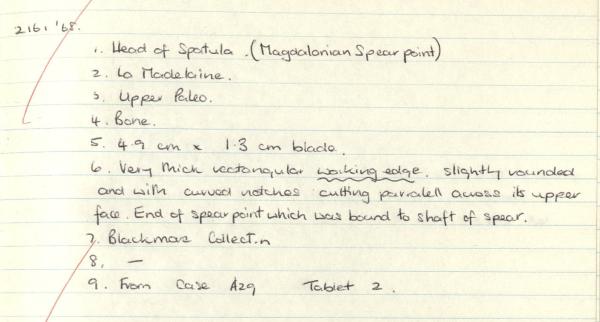 2161 '68.
1. Head of Spatula. (Magdalonian Spear point)
2. La Madelaine.
3. Upper Paleo.
4. Bone.
5. 4.9 cm x 1.3 cm blade.
6. Very thick rectangular working edge, slightly rounded
and with curved notches cutting paralell across its upper
face. End of spear point which was bound to shaft of spear.
7. Blackmore Collect.n
8. —
9. From Case A29 Tablet 2.